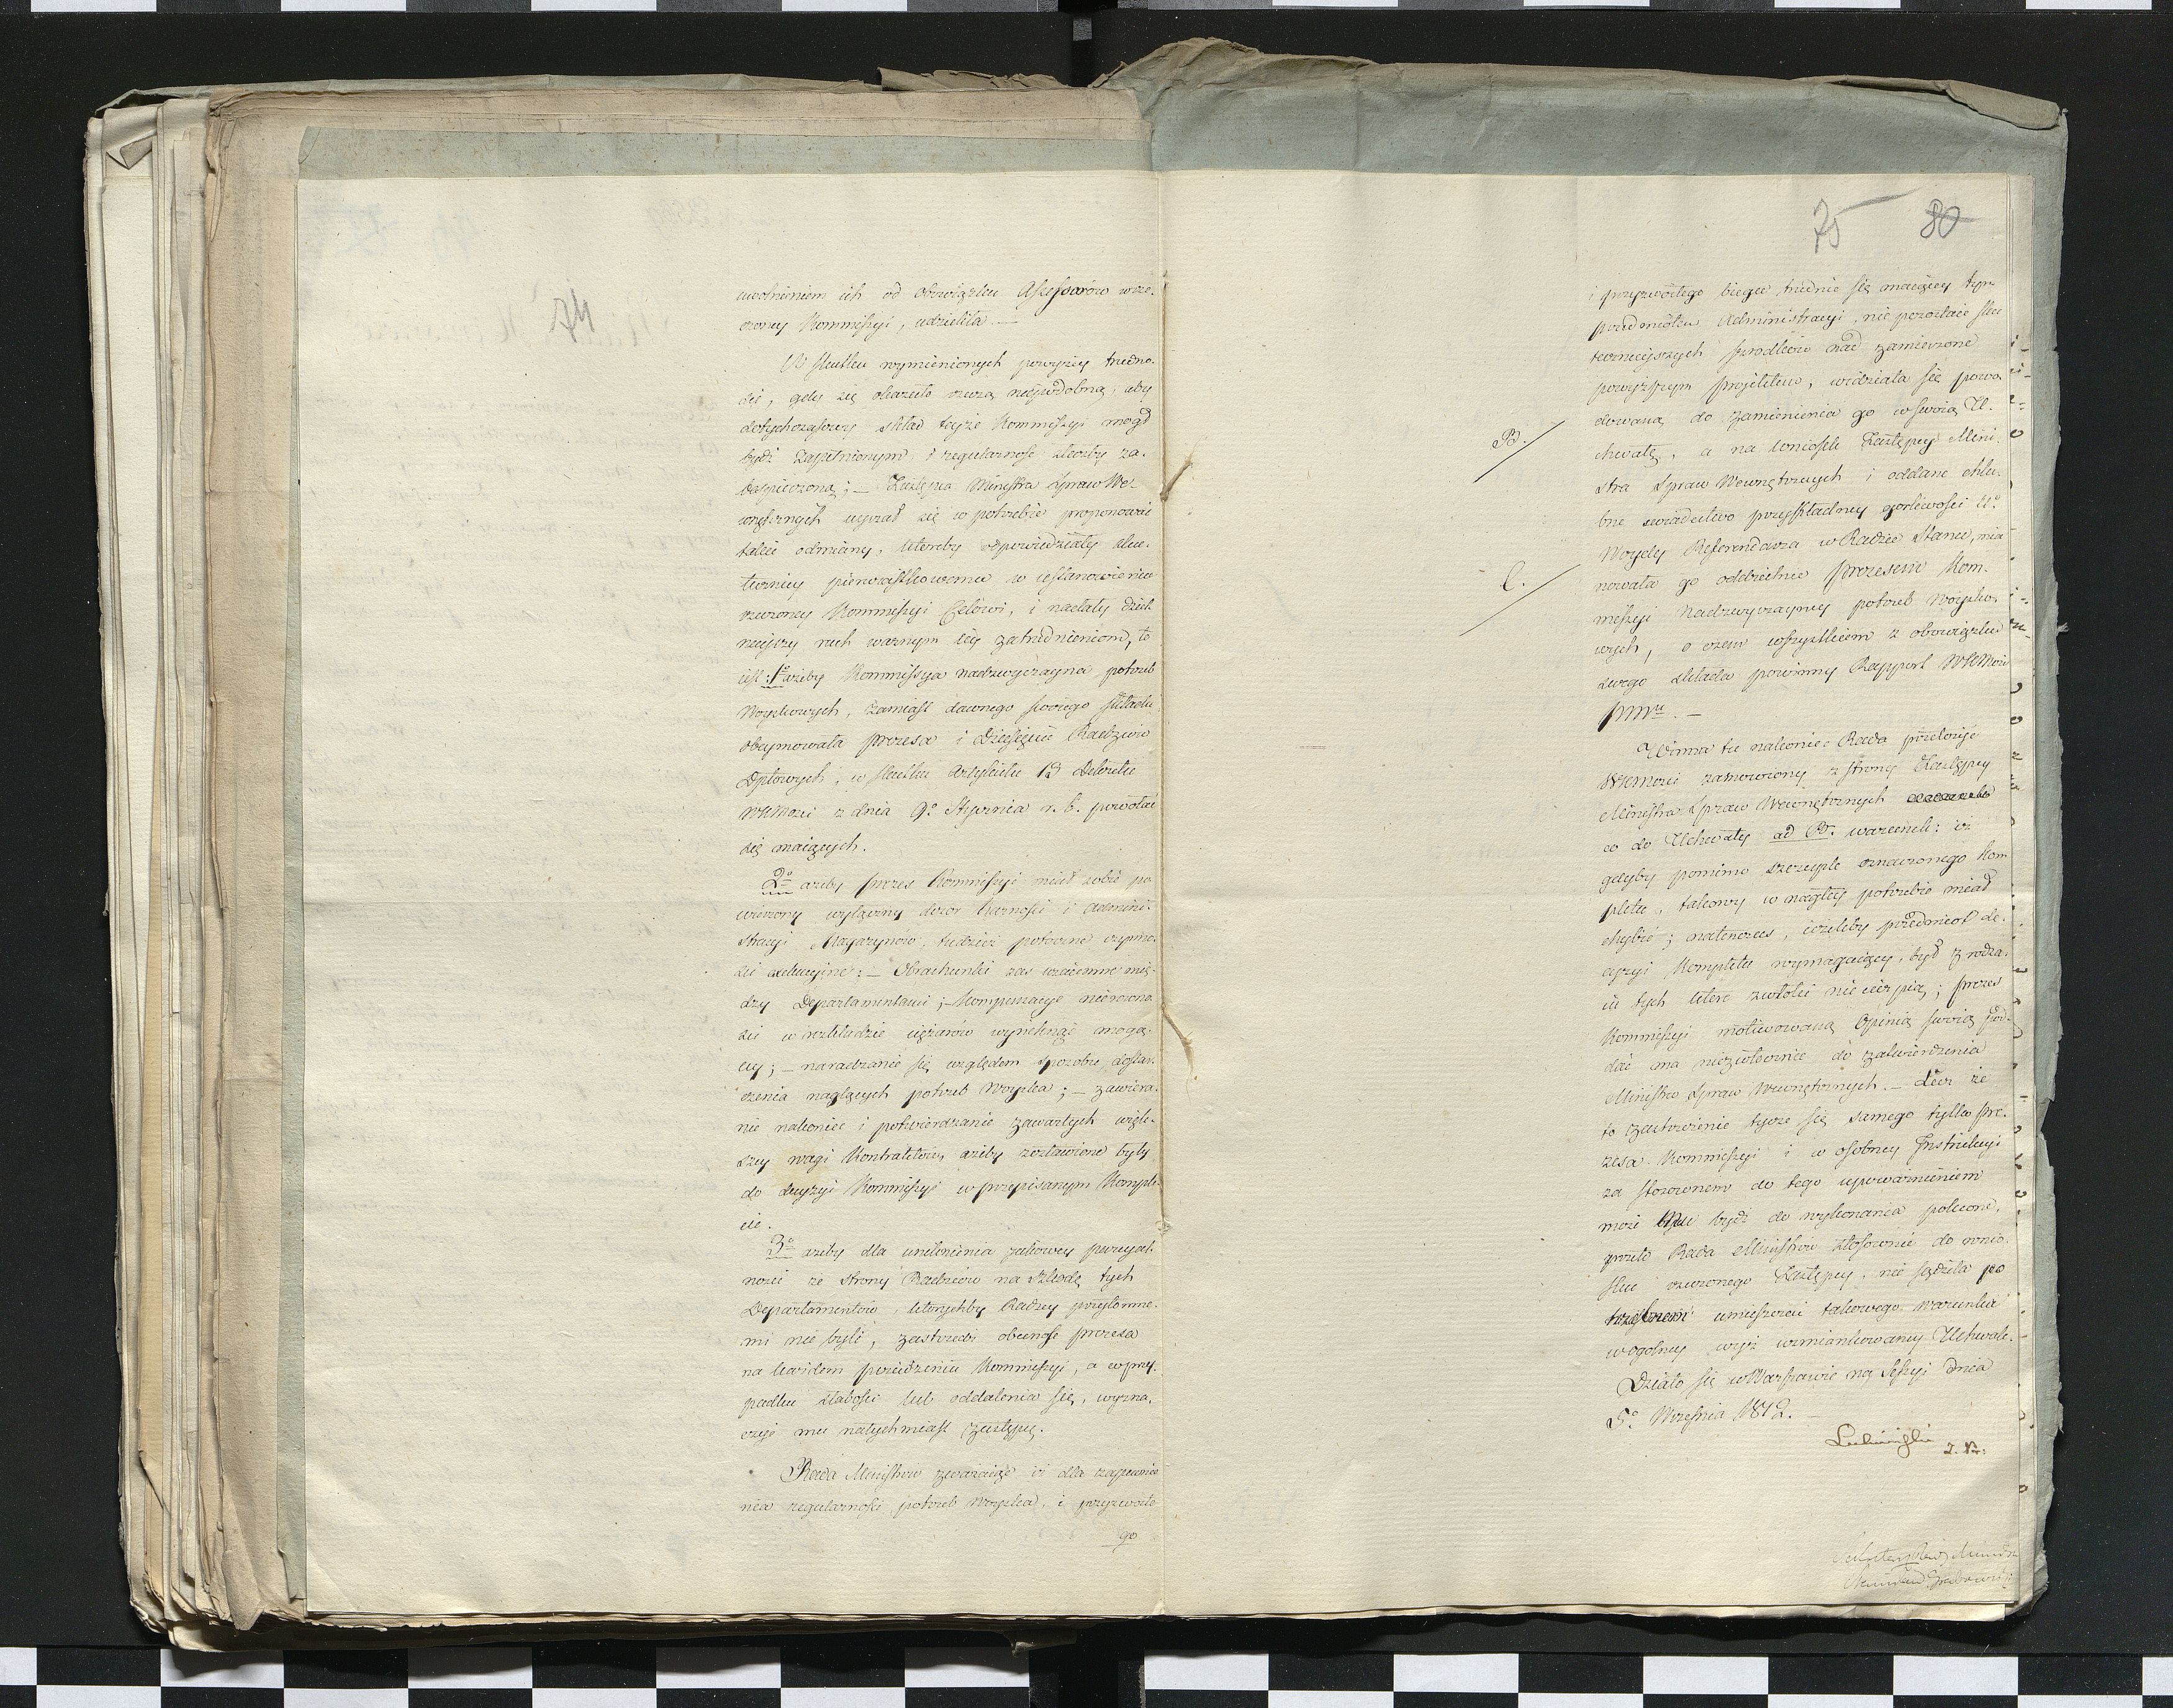 74
uwolnieniem ich od obowiązku Assessorów wrze-
czoney Kommissyi, udzieliła. —
W skutku wymienionych powyżey trudno-
ści, gdy się okazało rzeczą niepodobną, aby
dotychczasowy skład teyże Kommissyi mógł
bydź zapełnionym, i regularność służby za-
bezpieczoną; — Zastępca Ministra Spraw We-
wnętrznych uyrzał się w potrzebie proponować
takie odmiany, któreby odpowiedziały sku-
teczniey pierwiastkowemu w ustanowieniu
rzeczoney Kommissyi Celowi, i nadały dziel-
nieyszy ruch ważnym iey zatrudnieniom, to
iest: 1o ażeby Kommissya nadzwyczayna potrzeb
Woyskowych, zamiast dawnego swoiego składu
obeymowała prezesa i Dziesięciu Radzców
Dptowych, w skutku Artykułu 13 Dekretu
WKMości z dnia 9o Stycznia r. b. powołać
się maiących.
2o ażeby prezes Kommissyi miał sobie po-
wierzony wyłączny dozór Czynności i admini-
stracyi Magazynów, tudzież potoczne czynno-
ści exekucyine: — Obrachunki zaś wzaiemne mię-
dzy Departamentami; — Kompensacye nierówno-
ści w rozkładzie ciężarów wyniknąć mogą-
cey; — naradzanie się względem sposobu dostar-
czenia naglących potrzeb Woyska; — zawiera-
nie nakoniec i potwierdzanie zawartych więk-
szey wagi Kontraktów, ażeby zostawione były
do decyzyi Kommissyi w przepisanym Komple-
cie.
3o ażeby dla uniknienia iakowey parcyal-
ności ze strony Radzców na szkodę tych
Departamentów, którychby Radzcy przytomne-
mi nie byli, zastrzedz obecność prezesa
na każdem posiedzeniu Kommissyi, a w przy-
padku słabości lub oddalenia się, wyzna-
czyć mu natychmiast zastępcę.
Rada Ministrów zważaiąc iż dla zapewnie-
nia regularności potrzeb Woyska, i przyzwoite
go
75 80
i przyzwoitego biegu trudnić się maiącey tym
przedmiotem Administracyi, nie pozostaie sku
tecznieyszych środków nad zamierzone
powyższym projektem, widziała się powo-
dowaną do zamienienia go w swoią U-
B. chwałę, a na wniosek Zastępcy Mini-
stra Spraw Wewnętrznych i oddane chlu-
bne świadectwo przykładney gorliwości Uo
Woydy Referendarza w Radzie Stanu, mia
C. nowała go oddzielnie prezesem Kom-
missyi Nadzwyczayney potrzeb Woysko-
wych, o czem wszystkiem z obowiązku
swego składa powinny Rapport WKMości
PNMu. —
Winna tu nakoniec Rada przełożyć
WKMości zamówiony z strony Zastępcy
Ministra Spraw Wewnętrznych
co do Uchwały ad B. warunek: iż
gdyby pomimo szczupłe oznaczonego Kom
pletu, takowy w nagłey potrzebie miał
chybić; natenczas, ieżeliby przedmiot de-
cyzyi Kompletu wymagaiący, był z rodza-
iu tych które zwłoki nie cierpią; prezes
Kommissyi motiwowaną Opinią swoią pod-
dać ma niezwłocznie do zatwierdzenia
Ministra Spraw Wewnętrznych. — Lecz że
to zastrzeżenie tycze się samego tylko pre-
zesa Kommissyi i w osobney Instrukcyi
za stosownem do tego upoważnieniem
może Mu bydź do wykonania polecone,
przeto Rada Ministrów stosownie do wnio-
sku rzeczonego Zastępcy, nie sądziła po
trzebnem umieszczać takowego warunku
w ogolney wyż wzmiankowaney Uchwale.
Działo się w Warszawie na Sessyi dnia
5o Września 1812. —